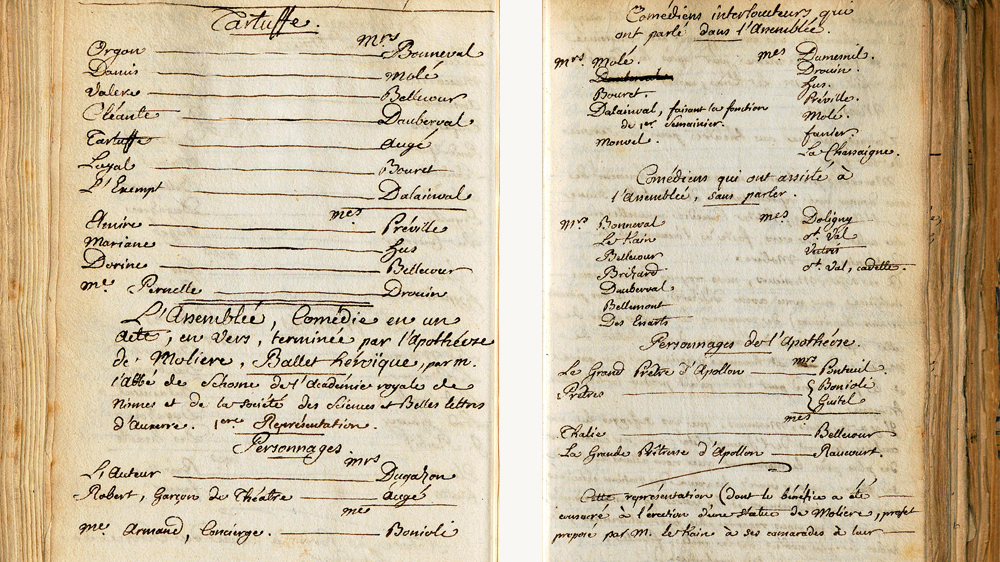 Tartuffe.
mrs
Orgon Bonneval
Damis Molé
Valere Bellecour
Cléante Dauberval
Tartuffe Augé
Loyal Bouret
L'Exempt Dalainval
mes
Elmire Préville
Mariane Hus
Dorine Bellecour
me. Pernelle Drouin
L'Assemblée, Comédie en un
acte, en vers, terminée par l'Apothéose
de Moliere, Ballet héroïque, par m.
l'abbé de Schosne de l'Academie royale de
Nismes et de la Societé des Sciences et Belles lettres
d'Auxerre. 1ere Représentation.
Personnages.
mrs
L'Auteur Dugazon
Robert, Garçon de Théatre Augé
mes
me. Armand, Concierge. Bonioli
Comédiens interlocuteurs qui
ont parlé dans l'Assemblée.
mrs. Molé.
Dauberval
Bouret.
Dalainval, faisant la fonction
de 1er Semainier.
Monvel.
mes. Dumesnil.
Drouin.
Hus.
Préville.
Molé.
fanier.
La Chassaigne.
Comédiens qui ont assisté à
l'Assemblée, sans parler.
mrs Bonneval
Le Kain
Bellecour
Brizard
Dauberval
Bellemont
Des Essarts
mes. Doligny
st. Val
Vestris
st. Val, cadette.
Personnages de l'Apothéose.
mrs
Le Grand Prêtre d'Apollon Ponteuil
Prêtres Bonioli
Guitel
mes
Thalie Bellecour
La Grande Prêtresse d'Apollon Raucourt.
Cette représentation (dont le bénéfice a été
consacré à l'érection d'une statue de Moliere, projet
proposé par M. le Kain à ses camarades à leur